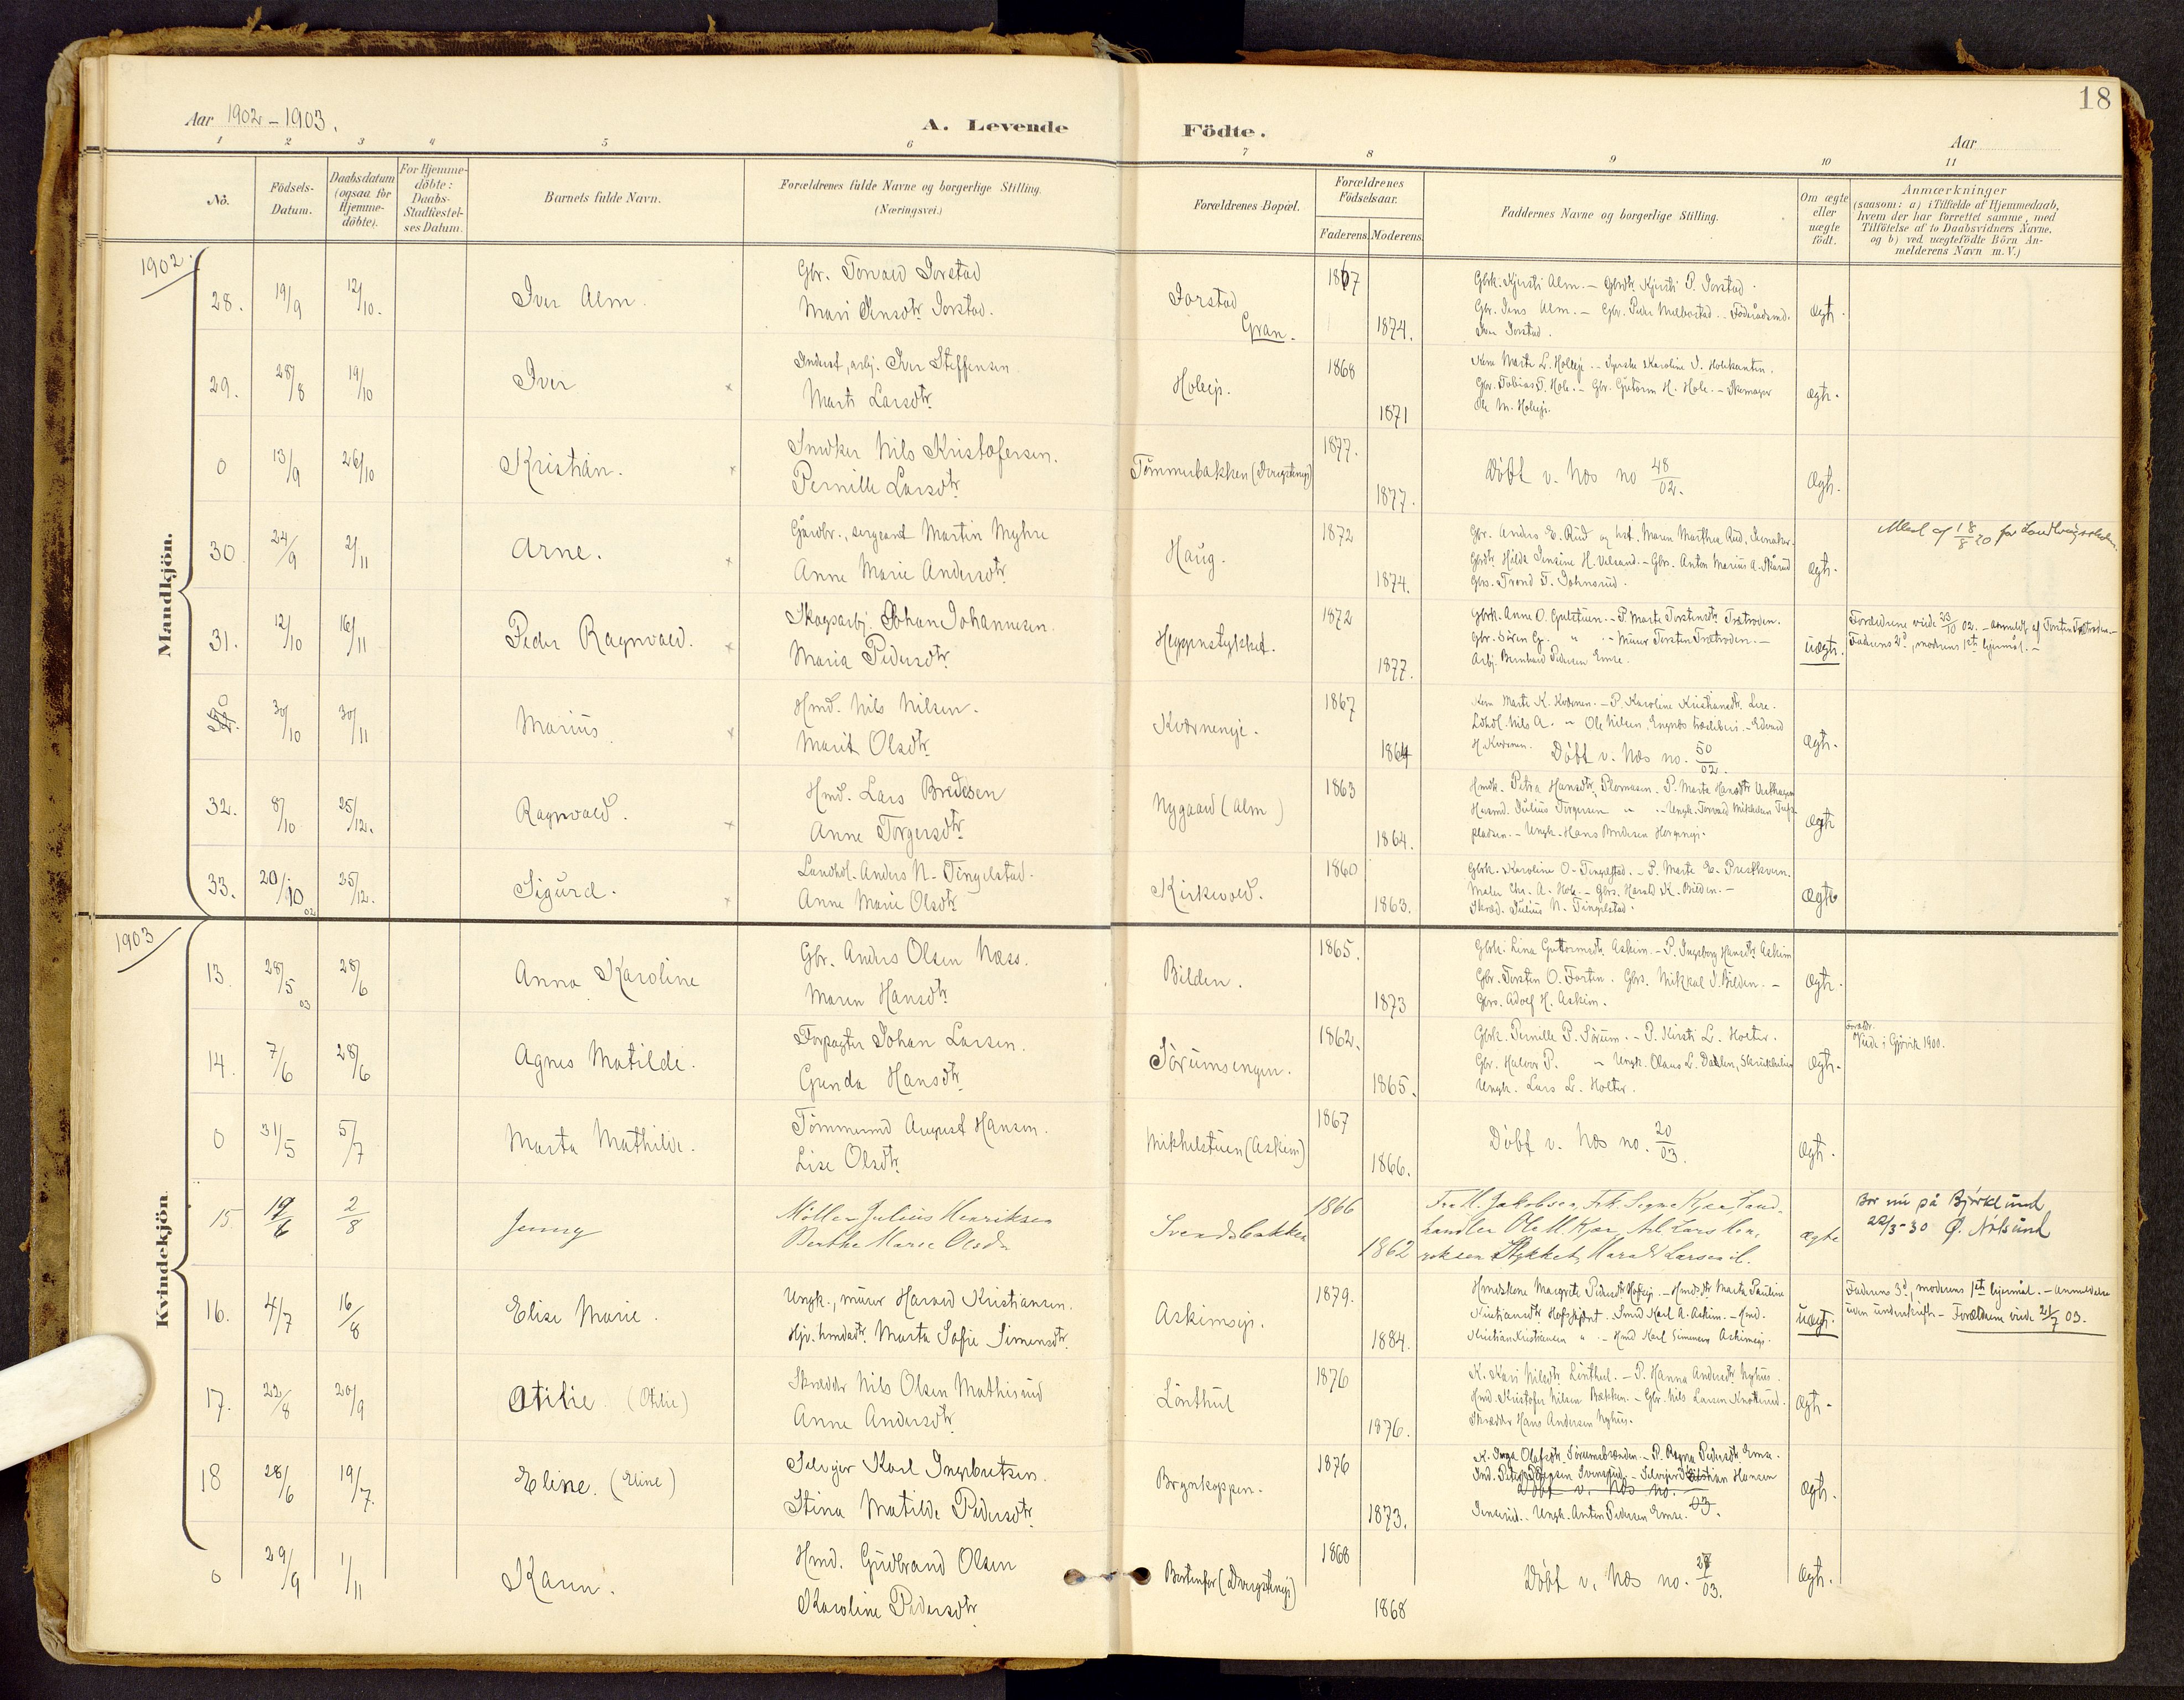 18
Aar 1902-1903.
A. Levende Födte.
Aar
1 2 3 4 5 6 7 8 9 10 11
No. Födsels-Datum. Daabsdatum (ogsaa for Hjemme-döbte). For Hjemme-döbte: Daabs-Stadfæstel-ses Datum. Barnets fulde Navn. Forældrenes fulde Navne og borgerlige Stilling. (Næringsvei.) Forældrenes Bopæl. Forældrenes Födselsaar. Faderens. Moderens. Faddernes Navne og borgerlige Stilling. Om ægte eller uægte födt. Anmærkninger (saasom: a) i Tilfælde af Hjemmedaab, hvem der har forrettet samme, med Tilföielse af to Daabsvidners Navne. og b) ved uægtefödte Börn An-melderens Navn m.V.)
Mandkjön.
1902.
28. 19/9 12/10. Iver Alm. Gbr. Torvald Jorstad
Mari Jensdtr Jorstad. Jorstad Gran. 1867 1874.
Gbrk. Kjersti Alm. - Gbrdtr. Kjersti P. Jorstad.
Gbr. Jens Alm. - Gbr. Peder Melbostad. - Föderådsmd.
Iver Jorstad. Ægte.
29. 28/8 19/10 Iver Indust. arbj. Iver Steffensen
Marte Larsdtr. Holeejr. 1868 1871
Gbr. Tobias T. Hole. - Gbr. Guttorm H. Hole. - Skomager
Ole M. Holeejr. ægte.
0 13/9 26/10 Kristian. Snedker Nils Kristofersen.
Pernille Larsdtr. Tömmerbakken 1877. 1877.
Döbt v. Næs no 48/02. Ægte.
30 24/9 2/11 Arne. Gårdbr., sergeant Martin Myhre
Anne Marie Andersdtr. Haug. 1872 1874.
Gbr. Anders E. Rud og hst. Maren Marthea Rud,
Gbrdtr. Hilda Jensine H. Velsand. - Gbrs. Anton Marius A.
Gbrs. Trond T. Johnsrud. ægte.
31. 12/10 16/11 Peder Ragnvald. Skogsarbj. Johan Johannesen.
Maria Pedersdtr. Heggenstykket. 1872 1877.
Gbrk. Anne O. - P. Marte Torstensdtr. Trætroden.
Gbr. Sören Gj. " - Murer Torsten Trætroden. -
Arbj. Bernhard Pedersen Emse. uægte.
Forældrene viede 23/10 02. - anmeldt af Torsten Trætroden. -
Faderens 2d, moderens 1ste leiermål. -
0 30/10 30/11 Marius Hmd. Nils Nilsen.
Marit Olsdtr. Kværneneje. 1867 1864
Kone Marte K. Kværnen. - P. Karoline Kristiansdtr. Lere.
Ldhdl. Nils A. " Ole Nilsen, - Edvard
H. Kværnen. Döbt v. Næs no. 50/02. Ægte.
32. 8/10 25/12. Ragnvald. Hmd. Lars Bredesen
Anne Torgersdtr. Nygaard (Alm) 1863 1864.
Hmdk. Petra Hansdtr. Plomasen. P. Marte Hansdtr
Husmd. Julius Torgersen " - Ungk. Torvald Mikkelsen
pladsen. - Ungk. Hans Bredesen ægte
33. 20/10 02 25/12. Sigurd. Landhdl. Anders N. Tingelstad.
Anne Marie Olsdtr. Kirkevold. 1860 1863.
Gbrk. Karoline O. Tingelstad. - P. Marte E. Prestkværn.
Maler Chr. A. Hole. - Gbrs. Harald K. Bilden. -
Skræd. Julius N. Tingelstad. ægte
Kvindekjön.
1903
13. 28/5 03 28/6 Anna Karoline Gbr. Anders Olsen Næss.
Maren Hansdtr. Bilden. 1865. 1873
Gbrk. Lina Guttormsdtr. Askim. - P. Ingeborg Hansdtr. Askim
Gbr. Torsten O. Horten. Gbrs. Mikkal I. Bilden. -
Gbrs. Adolf H. Askim. Ægte.
14. 7/6 28/6 Agnes Matilde. Forpagter Johan Larsen.
Gunda Hansdtr. Sörumsengen. 1862. 1865.
Gbrk. Pernille P. Sörum. - P. Kirsti L. Holter.
Gbr. Halvor P. " Ungk. Olaus L. Dahlen,
Ungk. Lars L. Holter. Ægte.
Forældr. Viede i Gjövik 1900.
0 31/5 5/7 Marta Mathilde. Tömmermd August Hansen.
Lise Olsdtr. Mikkelstuen (Askim) 1867 1866.
Döbt v. Næs no. 20/03. Ægte.
15 19/6 2/8 Jenny Möller Julius Henriksen
Berthe Marie Olsdtr Svendsbakken 1866 1862
Fru M. Jakobsen, Frk. Signe Kjær, Land-
handler Ole M. Kjær, Arb. Lars Hen-
riksen Stykket, Harald Larsen il. ægte
Bor nu på Björklund
22/3-30 Ø. Nölsund
16. 4/7 16/8 Elise Marie. Ungk., murer Harald Kristiansen.
Hjv. hmdsdtr. Marta Sofie Simensdtr. Askimsejr. 1879. 1884.
Hmdskone Margrete Pedersdtr. - Hmdsdtr. Marta Pauline
Kristiansdtr. - Smed Karl A. Askim. - Hmd.
Kristian Kristiansen " - Hmd Karl Simensen Askimsejr. uægte.
Faderens 3d, moderens 1ste leiermål. - Anmeldelse
uden underskrift. - Forældrene viede 21/7 03.
17. 22/8 20/9 Otilie (Otilie) Skrædder Nils Olsen Mathisrud
Anne Andersdtr. Lönthul 1876 1876.
K. Kari Nilsdtr. Lönthul. - P. Hanna Andersdtr. Nyhus.
Hmd. Kristofer Nilsen Bækken. - Gbr. Nils Larsen
Skrædder Hans Andersen Nyhus. Ægte.
18 28/6 19/7. Eline. (Eline) Selvejer Karl Ingebretsen.
Stina Matilde Pedersdtr. Brynkoppen. 1876 1873.
K. Inga Olafsdtr. - P. Ragna Pedersdtr. Emse.
Hansen
Döbt v. Næs no. 03.
Jensrud. - Ungk. Anton Pedersen Emse. Ægte.
0 29/9 1/11 Karen. Hmd. Gudbrand Olsen
Karoline Pedersdtr. 1868 1868
Döbt v. Næs no. 27/03. Ægte.